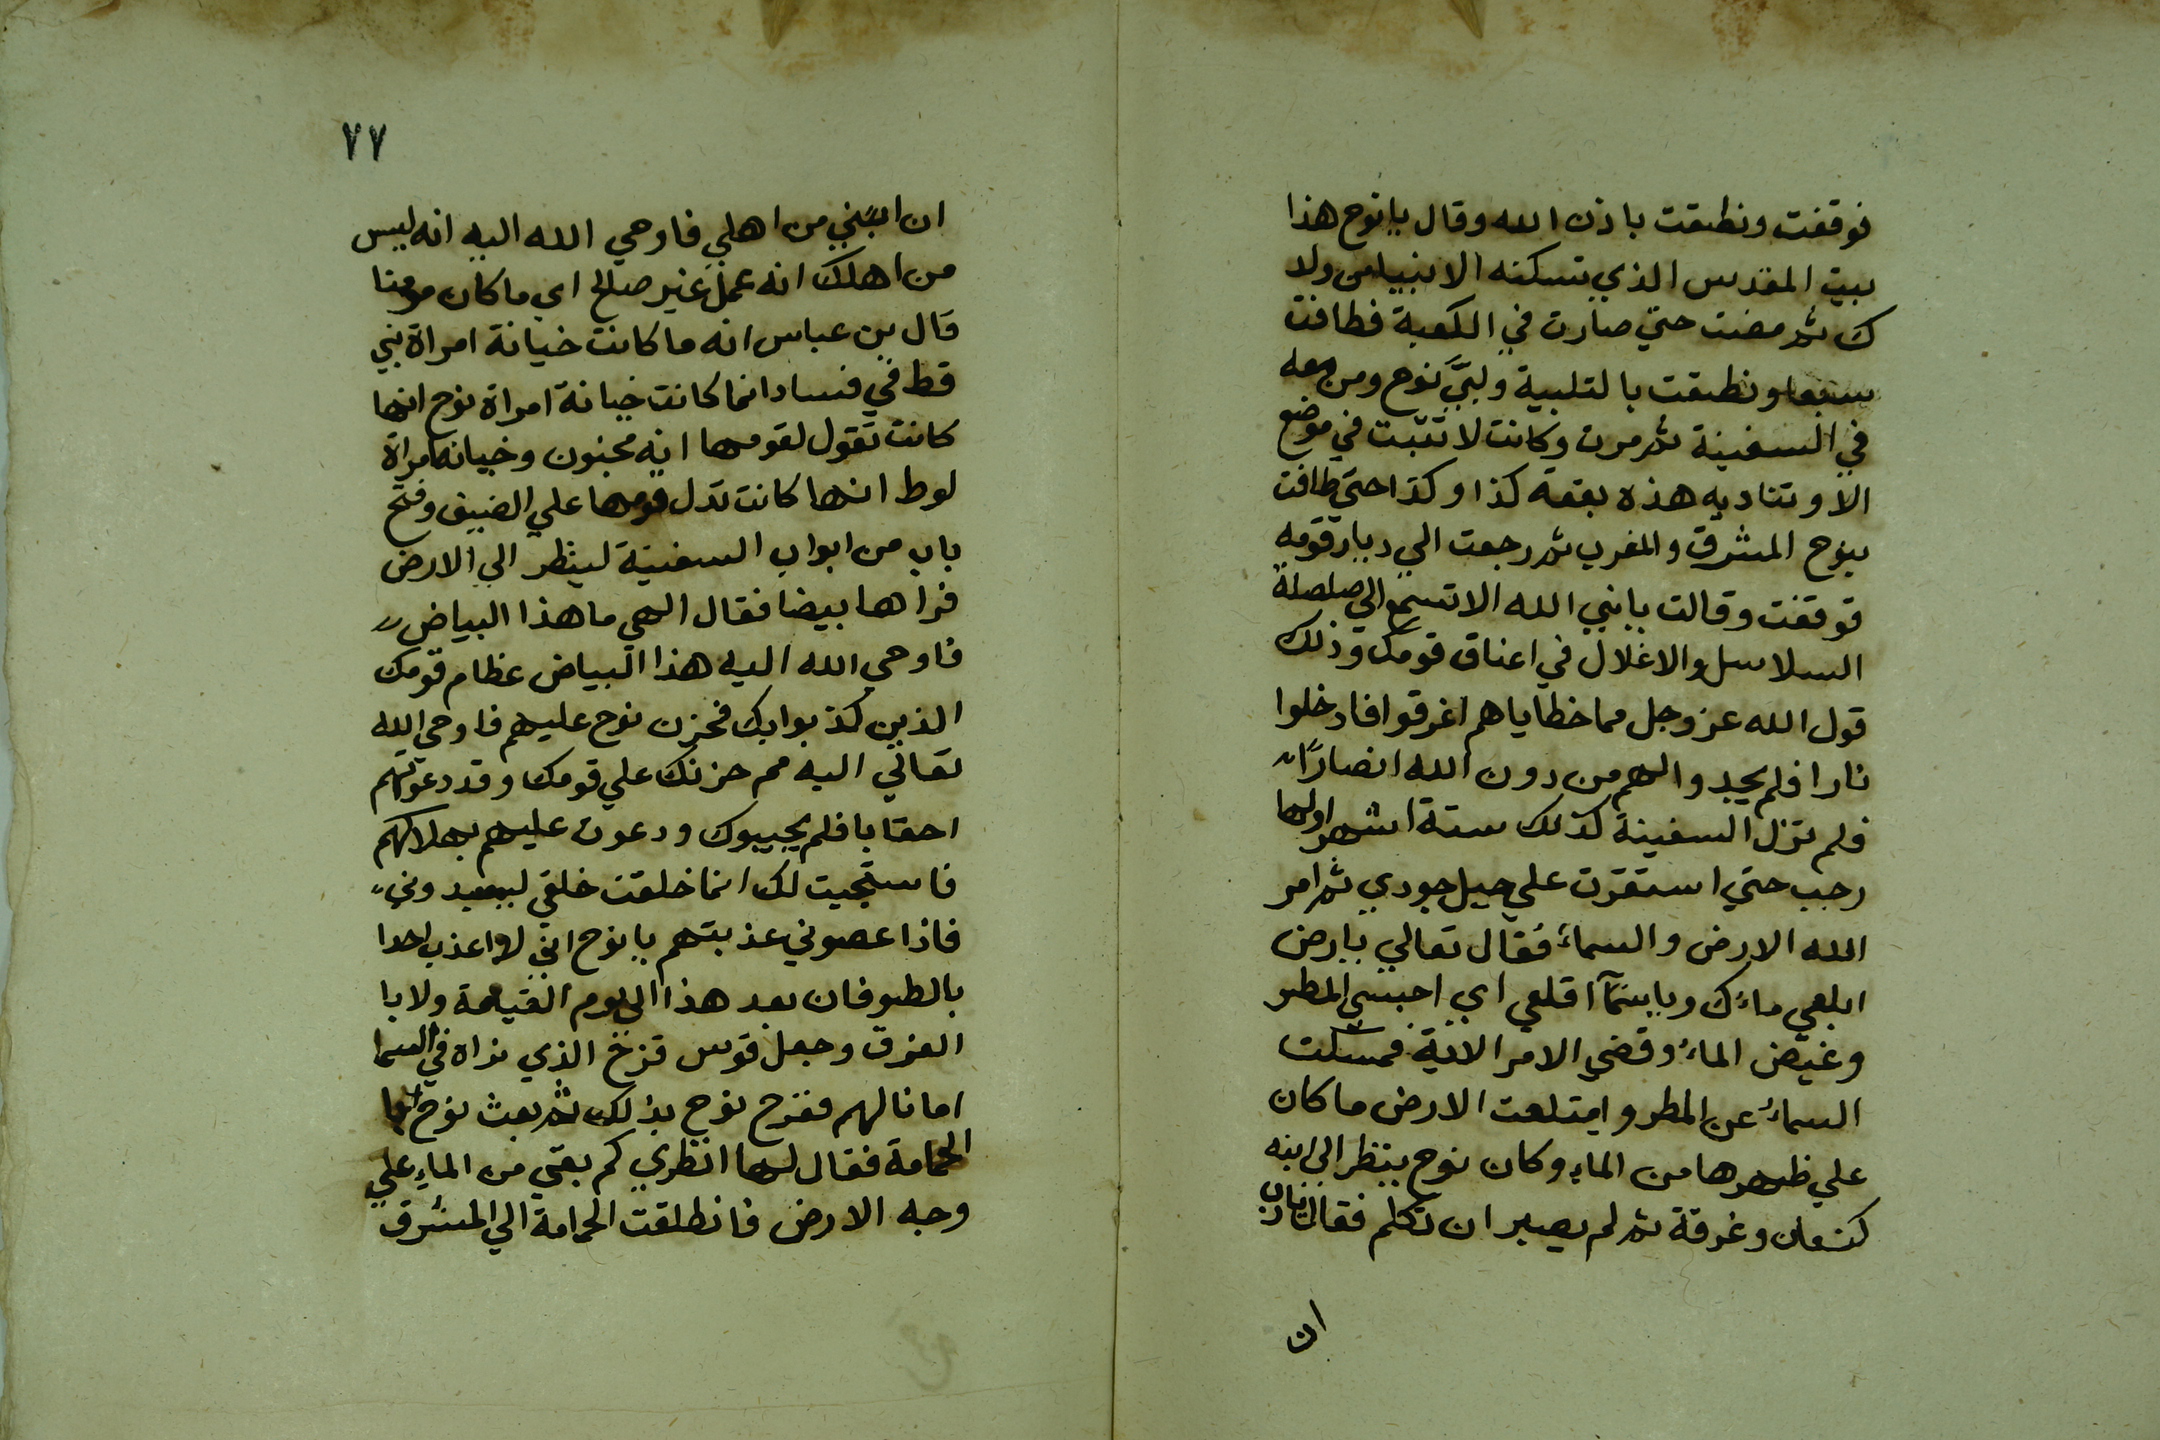 فوقفت ونطقت باذن الله وقال يا نوح هذا
بيت المقدس الذي تسكنه الانبيا من ولد
ك ثم مضت حتي صارت في الكعبة فطافت
سبعا ونطقت بالتلبية ولبَّي نوح ومن معه
في السفينة ثم مرت وكانت لا تثبت في موضع
الا وتناديه هذه بقعة كذا وكذا حتي طافت
بنوح المشرق والمغرب ثم رجعت الي ديار قومه
فوقفت وقالت يا نبي الله الا تسمع الي صلصلة
السلاسل والاغلال في اعناق قومك وذلك
قول الله عز وجل مما خطاياهم اغرقوا فادخلوا
نارا فلم يجدوا لهم من دون الله انصارًا
فلم تزل السفينة كذلك ستة اشهر اولها
رجب حتي استقرت علي جبل جودي ثم امر
الله الارض والسماء فقال تعالي يا رض
ابلعي ماءك ويا سمآ اقلعي اي احبسي المطر
وغيض الماء وقضي الامر الاية فمسكت
السماء عن المطر وابتلعت الارض ما كان
علي ظهرها من الماء وكان نوح ينظر الي ابنه
كنعان وغرقة ثم لم يصبر ان تكلم فقال يا رب
ان
٧٧
ان ابني من اهلي فاوحي الله اليه انه ليس
من اهلك انه عمل غير صالح اي ما كان مومنا
قال بن عباس انه ما كانت خيانة امراة نبي
قط في فساد انما كانت خيانة امراة نوح انها
كانت تقول لقومها انه مجنون وخيانه امراة
لوط انها كانت تدل قومها علي الضيف وفتح
باب من ابواب السفينة لينظر الي الارض
فراها بيضا فقال الهي ما هذا البياض
فاوحي الله اليه هذا البياض عظام قومك
الذين كذبوا بك فحزن نوح عليهم فاوحي الله
تعالي اليه مم حزنك علي قومك وقد دعوتهم
احقابا فلم يجيبوك ودعوت عليهم بهلاكهم
فاستجيت لك انما خلقت خلقي ليعبدوني
فاذا عصوني عذبتهم يا نوح اني لا اعذب احدا
بالطوفان بعد هذا الي يوم القيامة ولا با
الغرق وجعل قوس قزخ الذي نراه في السما
امانا لهم ففرح نوح بذلك ثم بعث نوح
الحمامة فقال لها انظري كم بقي من الماء علي
وجه الارض فانطلقت الحمامة الي المشرق